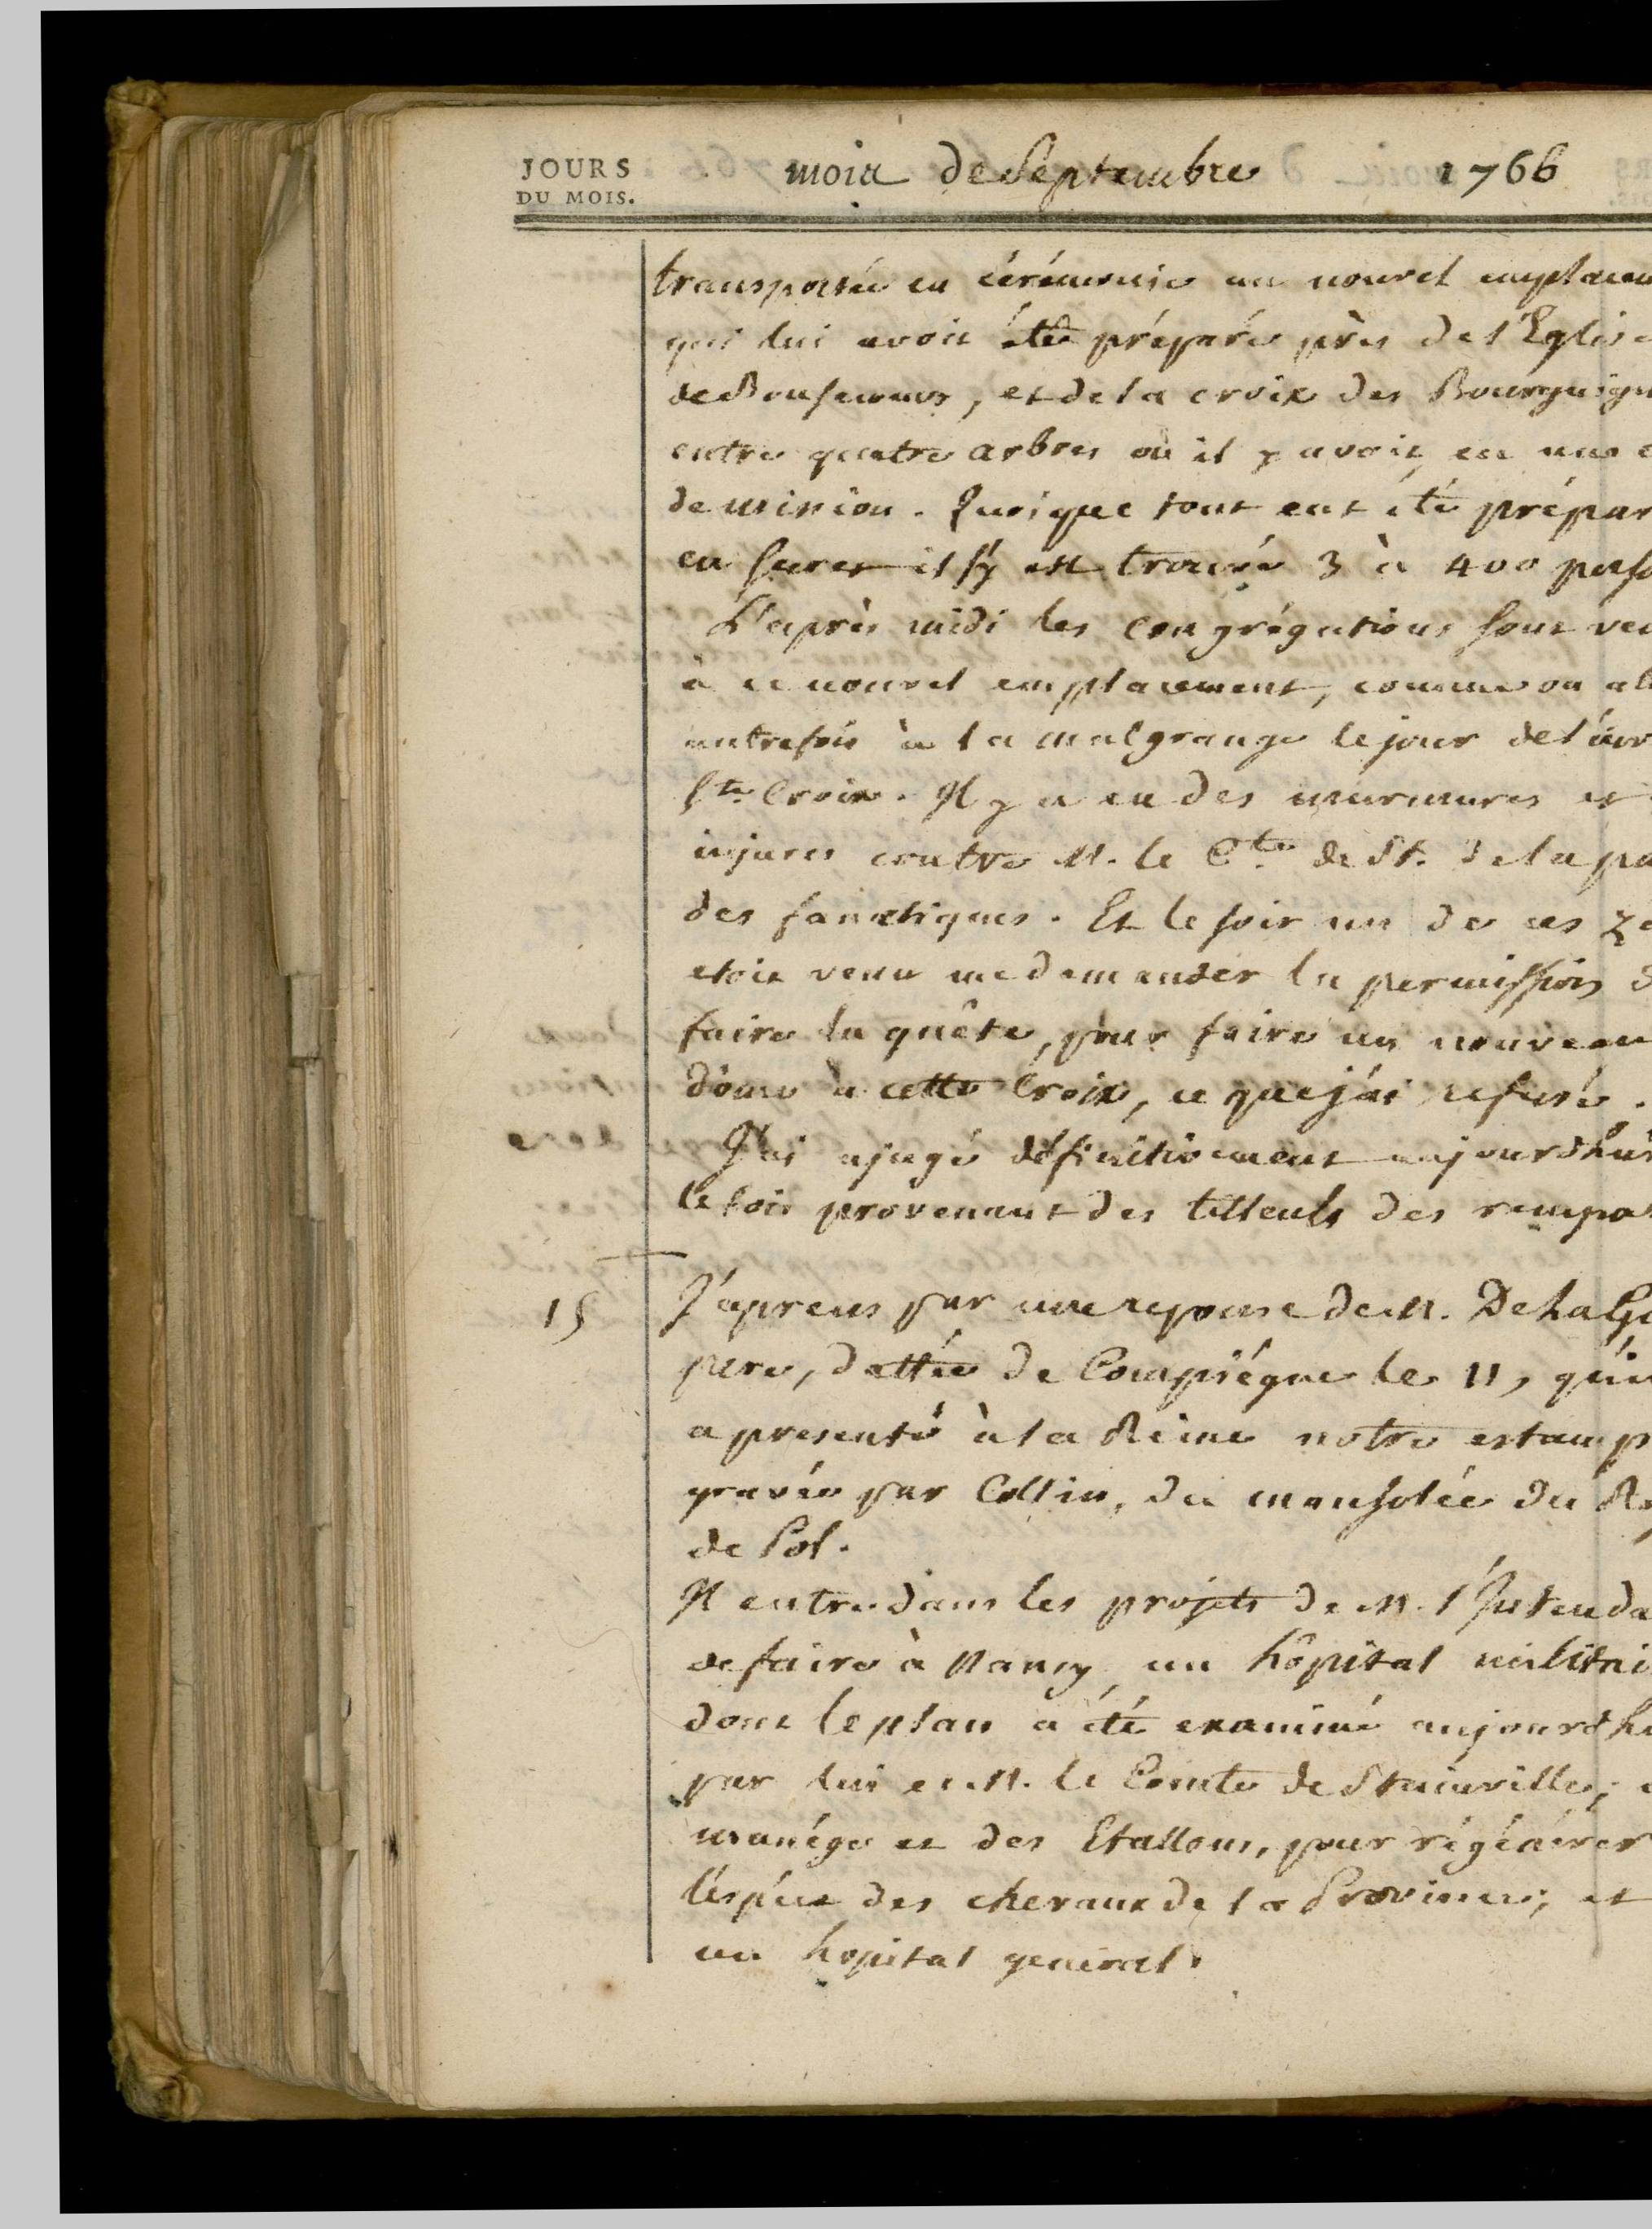 JOURS
DU MOIS.
mois de Septembre 1766
transportée en cérémonie au nouvel emplacem
qui lui avoit été préparé près de l'Eglise
de Bonsecours, et de la croix des Bourguign
entre quatre arbres où il y avoit eu une
de mission. Quoique tout eut été préparé
en secret il s'y est trouvé 3 à 400 perso
L'après midi les congrégations sont ven
à ce nouvel emplacement, comme on all
autrefois à la malgrange le jour de l'
Ste Croix. Il y a eu des murmures et
injures contre M. le Cte de St. de la pa
des fanatiques. Et le soir un de ces ze
etoit venu me demander la permission d
faire la quête, pour faire un nouveau
dôme à cette Croix, ce que j'ai refusé.
J'ai ajugé définitivement aujourdhui
le bois provenant des tilleuls des rempa
15
J'aprens par une reponse de M. De La Ga
pere, dattée de Compiégne le 11, qu'
a presenté à la Reine notre estamp
gravée par Collin, du mausolée du R
de Pol.
Il entre dans les projets de M. l'Intenda
de faire à Nancy un hôpital militai
dont le plan a été examiné aujourdhu
par lui et M. le Comte de Stainville;
manége et des Etallons, pour régénérer
l'espéce des chevaux de la Province; et
un hopital general.